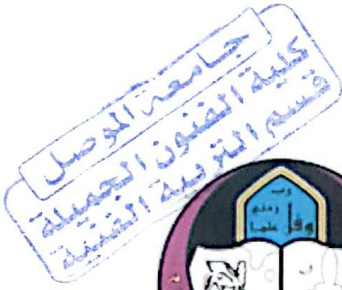 جامعة الموصل
كلية الفنون الجميلة
قسم التربية الفنية
وقل
رب
زدني
علما